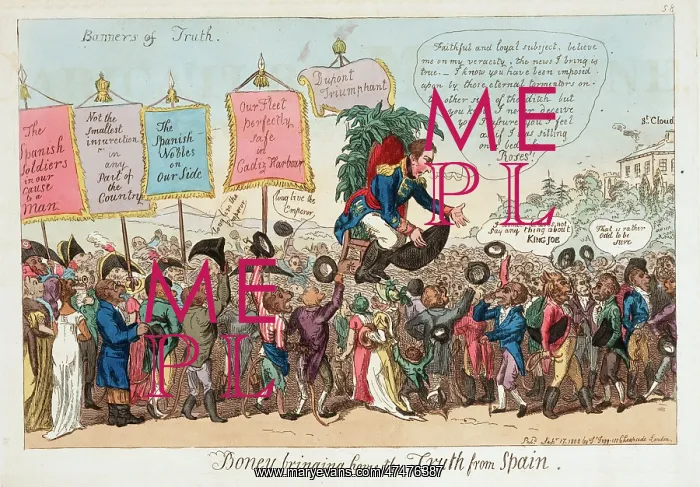 58
Banners of Truth.
The
Spanish
Soldiers
in our
Cause
to a
Man
Not the
Smallest
insurrection
in
any
Part of
the
Country
The
Spanish
Nobles
on
Our Side
Our Fleet
perfectly
Safe
in
Cadiz Harbour
Dupont
Triumphant
Faithful and loyal subject, believe
me on my veracity, the news I bring is
true. I know you have been imposed
upon by those eternal tormentors on
other side of the ditch but
you know I never deceive
you I feel
as if I was sitting
on bed of
Roses!!
St. Cloud
long live the
Emperor
long live the
Emperor
not
say any thing about
KING JOE
That is rather
odd to be
sure
MEPL
MEPL
Pubd. 17, 1808 by Ts. Tegg 111 Cheapside London.
Boney bringing home the Truth from Spain.
www.maryevans.com/47476387